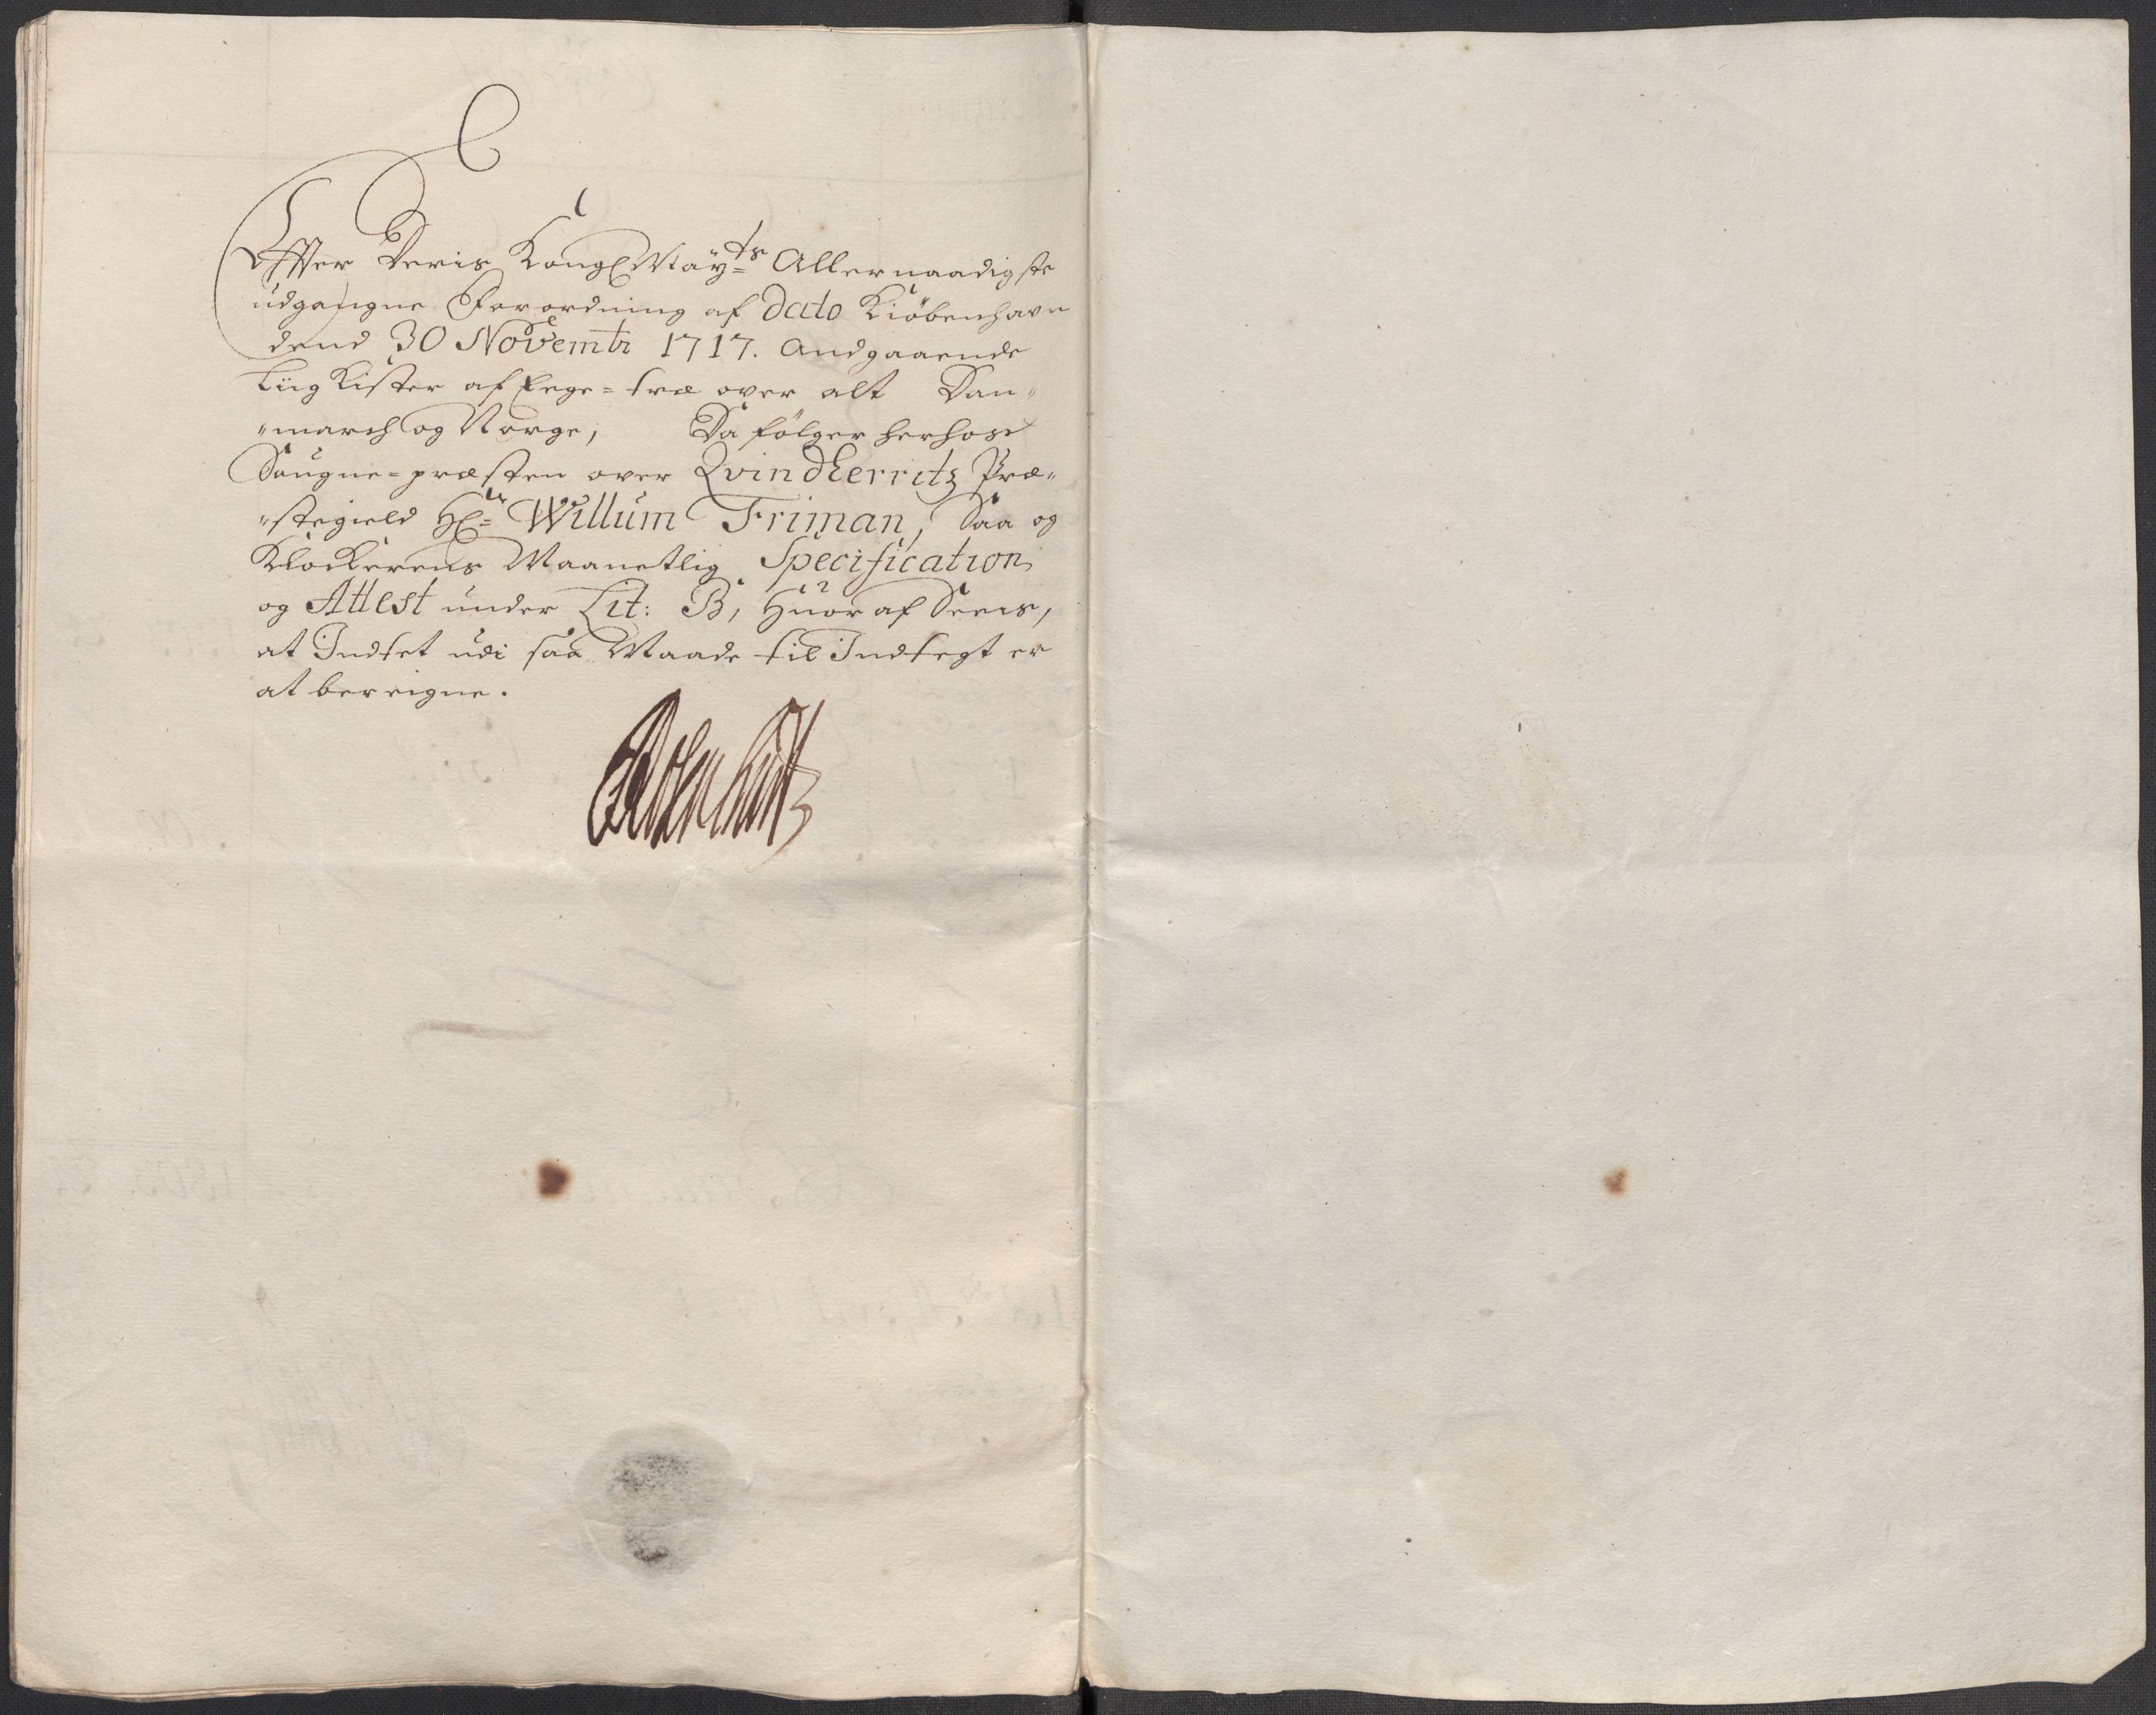 Effter Deris Kongl May:ts Allernaadigste
udgangne Forordning af Dato Kiöbenhavn
dend 30 Novembr 1717. Andgaaende
Liig Kister af Eege=træ over alt Dan"
"march og Norge, Da fölger herhos
Sougne=præsten over Qvindherritz Præ"
"stegield Hr= Willum Friman, Saa og
Klockerens Maanetlig Specification
og Attest under Lit: B, Huor af Sees,
at Indtet udi saa Maade til Indtegt er
at bereigne.